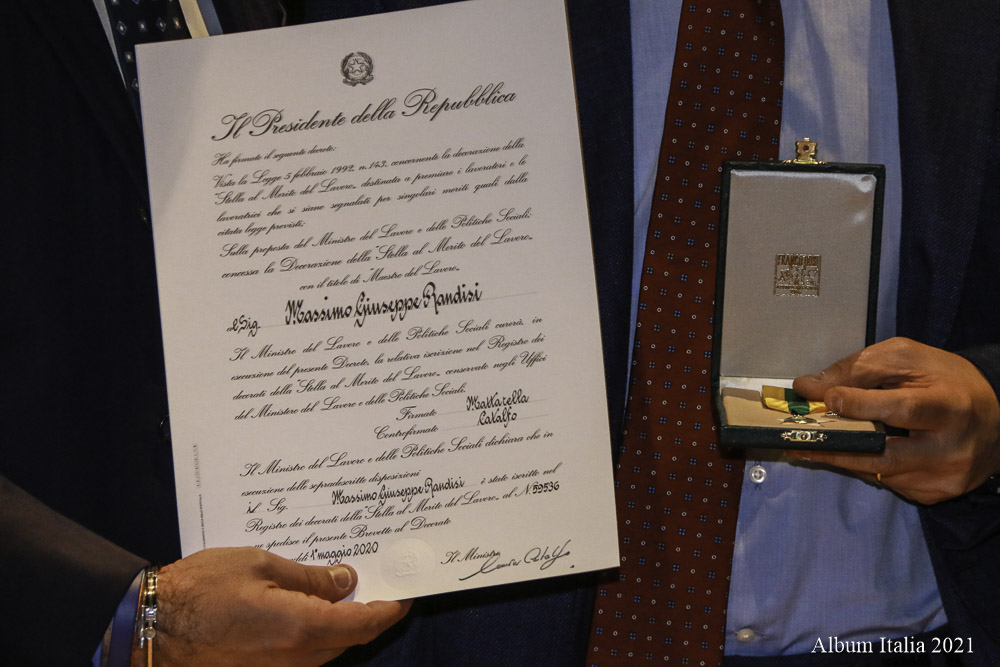 Il Presidente della Repubblica
Ha firmato il seguente decreto:
Vista la Legge 5 febbraio 1992, n. 143, concernente la decorazione della
"Stella al Merito del Lavoro", destinata a premiare i lavoratori e le
lavoratrici che si siano segnalati per singolari meriti quali dalla
citata legge previsti;
Sulla proposta del Ministro del Lavoro e delle Politiche Sociali;
concessa la Decorazione della "Stella al Merito del Lavoro"
con il titolo di "Maestro del Lavoro"
al Sig. Massimo Giuseppe Randisi
Il Ministro del Lavoro e delle Politiche Sociali curerà, in
esecuzione del presente Decreto, la relativa iscrizione nel Registro dei
decorati della "Stella al Merito del Lavoro" conservato negli Uffici
del Ministero del Lavoro e delle Politiche Sociali.
Firmato Mattarella
Controfirmato Catalfo
Il Ministro del Lavoro e delle Politiche Sociali dichiara che in
esecuzione delle sopradescritte disposizioni
il Sig. Massimo Giuseppe Randisi è stato iscritto nel
Registro dei decorati della "Stella al Merito del Lavoro" al N. 59536
spedisce il presente Brevetto al Decorato
addì 1° maggio 2020
Il Ministro
Album Italia 2021